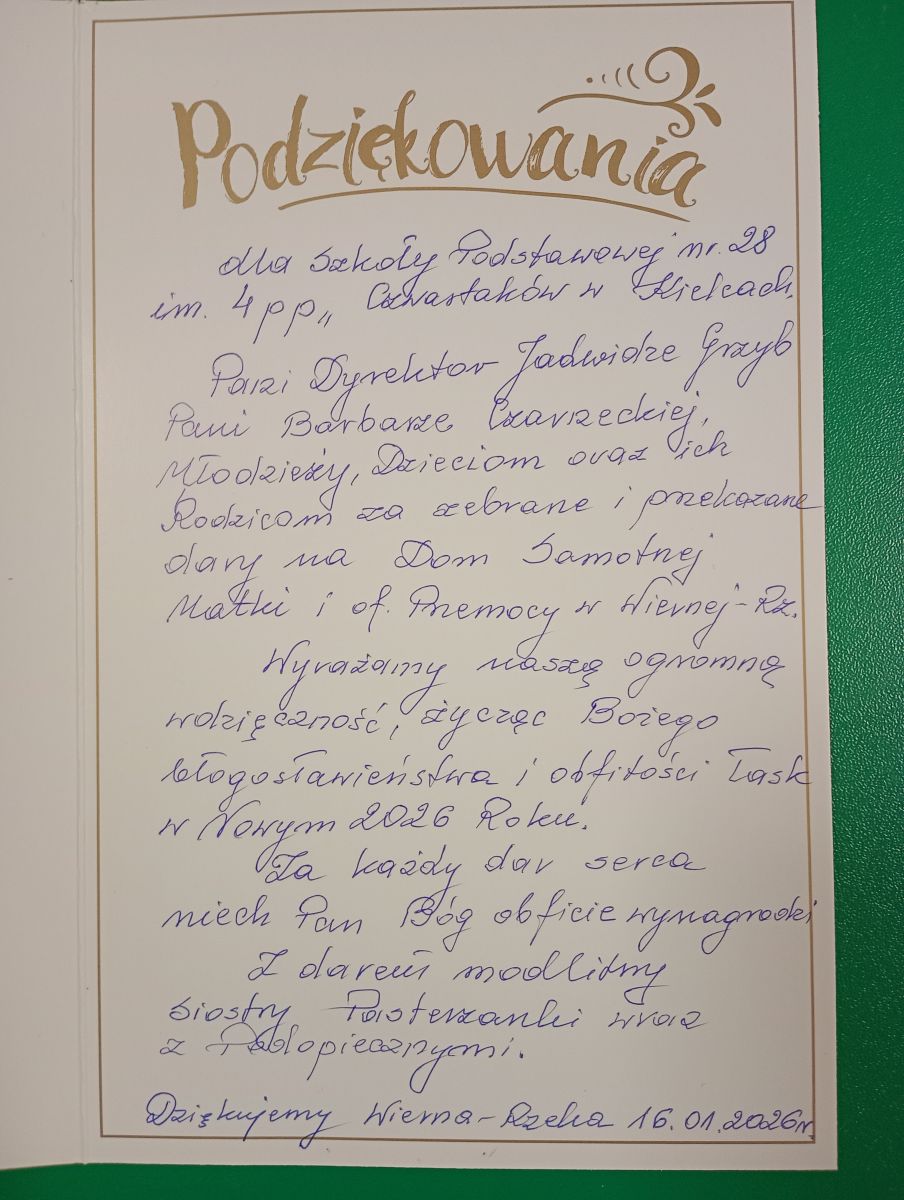 Podziękowania
dla Szkoły Podstawowej nr. 28
im. 4 pp „ Czwartaków w Kielcach.
Pani Dyrektor Jadwidze Grzyb
Pani Barbarze Czarneckiej,
Młodzieży, Dzieciom oraz ich
Rodzicom za zebrane i przekazane
dary na Dom Samotnej
Matki i of. Przemocy w Wiernej-Rz.
Wyrażamy naszą ogromną
wdzięczność, życząc Bożego
błogosławieństwa i obfitości Łask
w Nowym 2026 Roku.
Za każdy dar serca
niech Pan Bóg obficie wynagrodzi
Z darem modlitwy
siostry Pasterzanki wraz
z Podopiecznymi.
Dziękujemy Wierna-Rzeka 16.01.2026r.